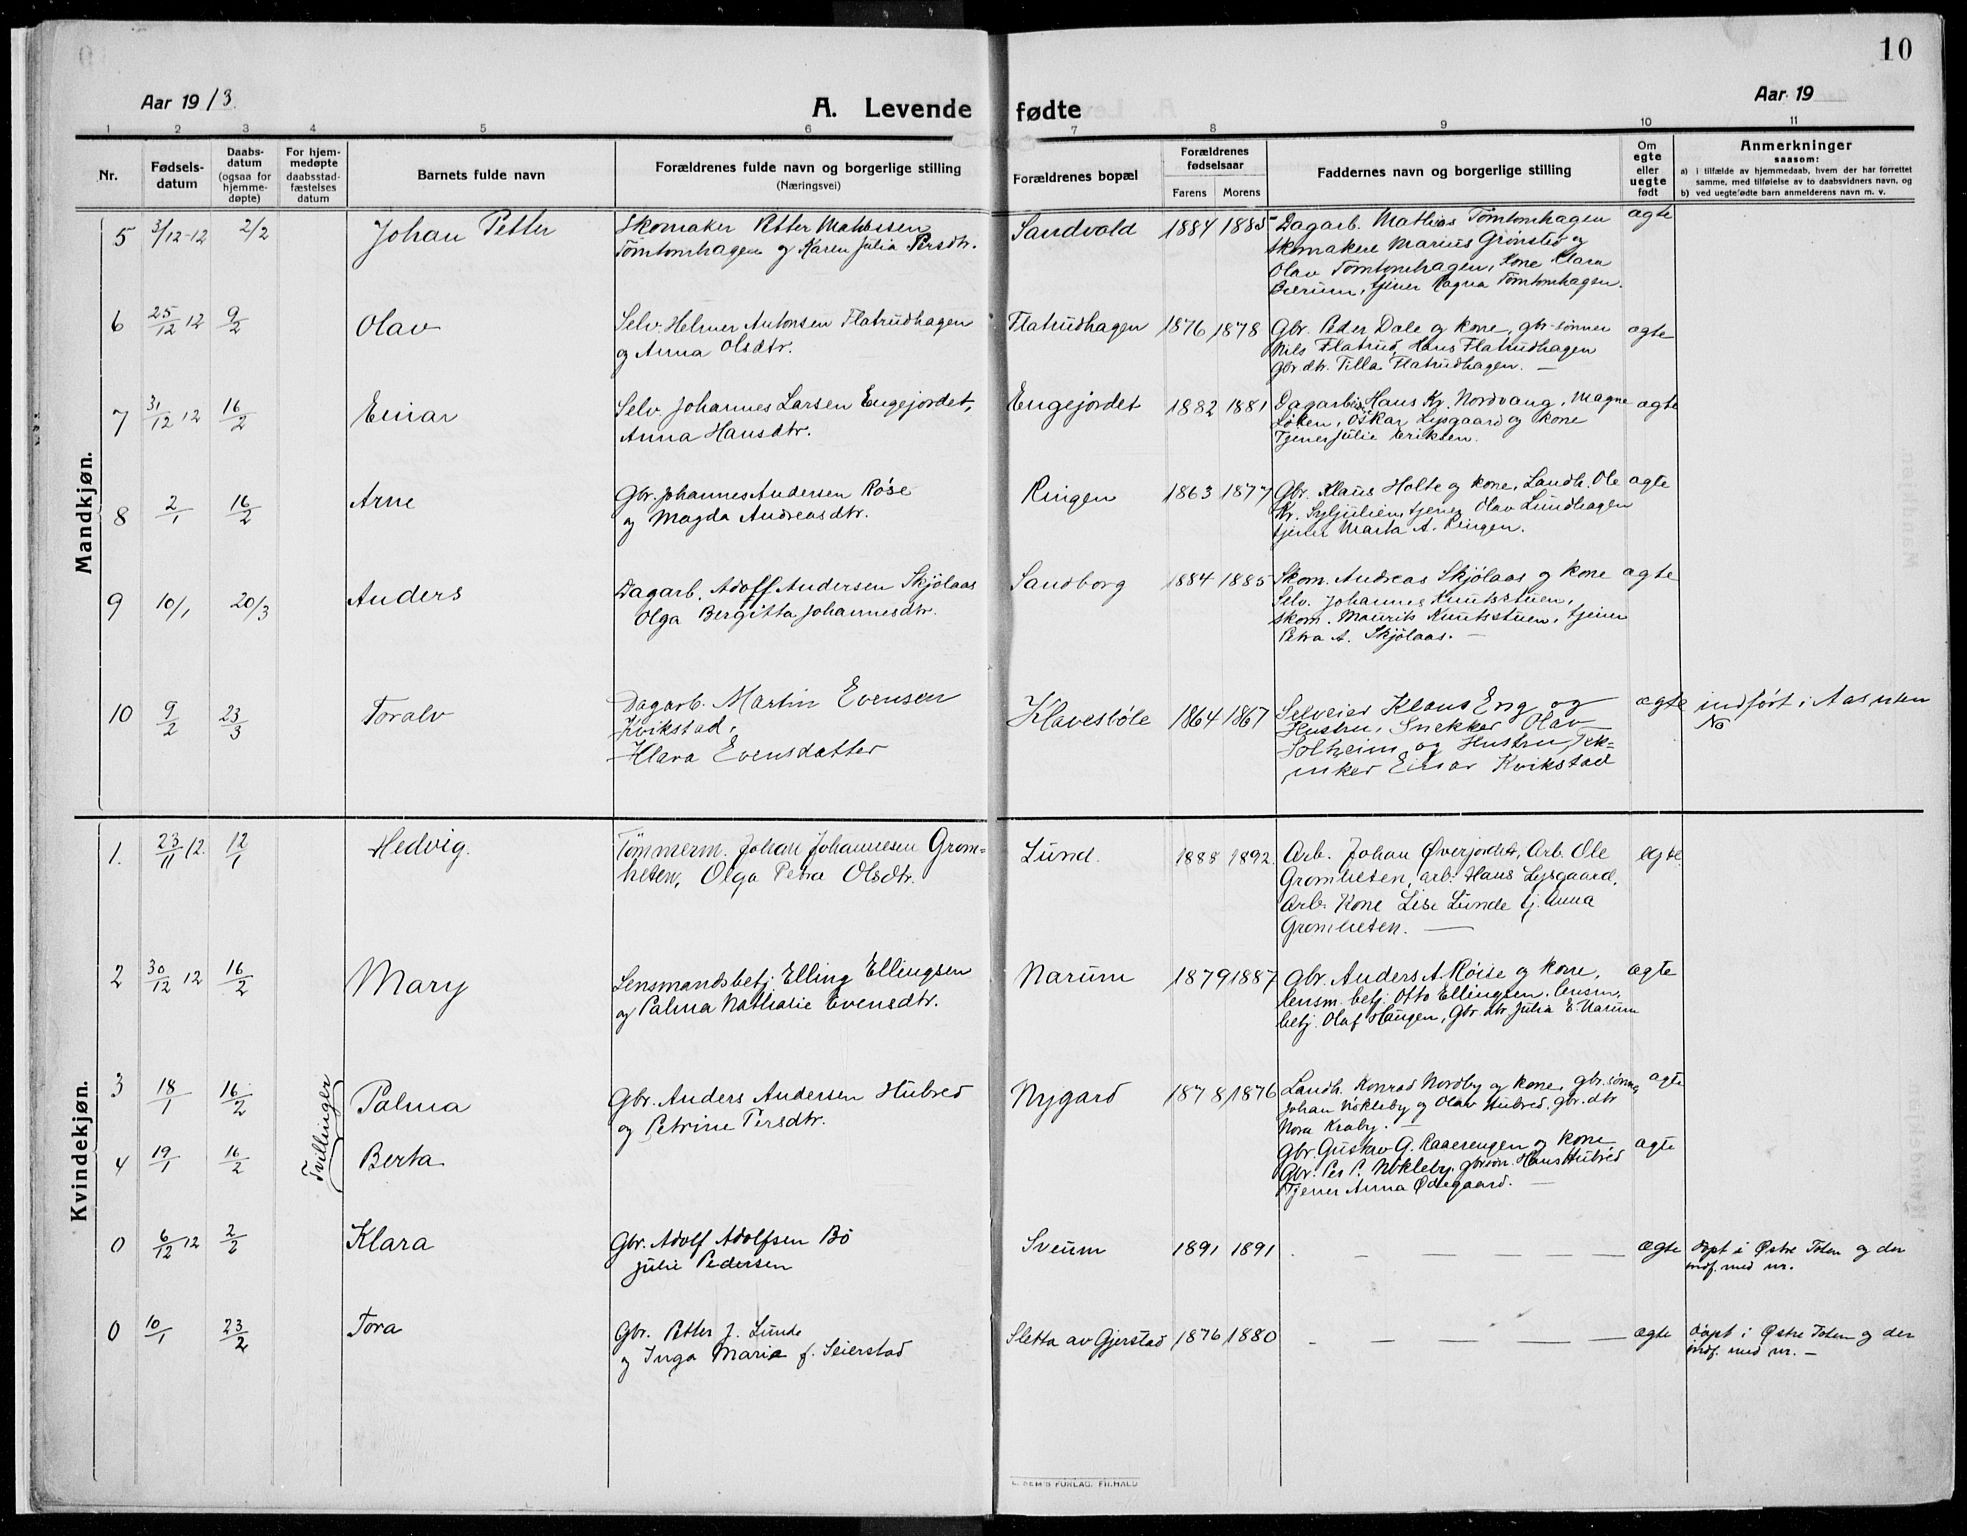 10
Aar 1913.
A. Levende fødte
Aar 19
1 2 3 4 5 6 7 8 9 10 11
Nr.
Fødsels-
datum
Daabs-
datum
(ogsaa for
hjemme-
døpte)
For hjem-
medøpte
daabsstad-
fæstelses
datum
Barnets fulde navn
Forældrenes fulde navn og borgerlige stilling
(Næringsvei)
Forældrenes bopæl
Forældrenes
fødselsaar
Farens Morens
Faddernes navn og borgerlige stilling
Om
egte
eller
uegte
født
Anmerkninger
saasom:
a) i tilfælde av hjemmedaab, hvem der har forrettet
samme, med tilføielse av to daabsvidners navn, og
b) ved uegte fødte barn anmelderens navn m. v.
Mandkjøn.
5 3/12-12 2/2 Johan Petter
Skomaker Petter Mathissen
Tømtomhagen og Karen Julia Persdtr.
Sandvold 1884 1885
Dagarb. Mathias Tømtomhagen
skomakere Marius Grønsted og
Olav Tømtomhagen, Kone Klara
Bierum, tjener Ragna Tømtomhagen.
ægte
6 25/12 12 9/2 Olav
Selv. Helmer Antonsen Flatrudhagen
og Anna Olsdtr.
Flatrudhagen 1876 1878
Gbr. Peder Dale og kone, gbr-sønner
Nils Flatrud, Hans Flatrudhagen
Gbr dtr. Tilla Flatrudhagen. —
ægte
7 31/12 12 16/2 Einar
Selv. Johannes Larsen Engejordet,
Anna Hansdtr.
Engejordet 1882 1881
Dagarb. Hans Kr. Nordvang, Magne
Løken, Oskar Lysgaard og kone
Tjener Julie Eriksen.
ægte
8 2/1 16/2 Arne
Gbr. Johannes Andersen Røise
og Magda Andreasdtr.
Ringen 1863 1877
Gbr. Klaus Holte og kone, Landh. Ole
Kr. Syljulien, tjener Olav Lundhagen
tjener Marta A. Ringen.
ægte
9 10/1 20/3 Anders
Dagarb. Adolf Andersen Skjølaas
Olga Bergitta Johannesdtr.
Sandborg 1884 1885
Skom. Andreas Skjølaas og kone
Selv. Johannes Knutsstuen,
skom. Maurits Knutsstuen, tjener
Petra A. Skjølaas. —
ægte
10 9/2 23/3 Toralv
Dagarb. Martin Evensen
Kvikstad,
Klara Evensdatter
Klavesbøle 1864 1867
Selveier Klaus Eng og
Hustru, Snekker Olav
Solheim og Hustru, Tek=
niker Einar Kvikstad
ægte
indført i Aas uten
No
Kvindekjøn.
1. 23/11 12. 12/1 Hedvig.
Tømmerm. Johan Johannesen Grom=
heten, Olga Petra Olsdtr.
Lund. 1888 1892.
Arb. Johan Øverjordet, Arb. Ole
Gromheten, arb. Hans Lysgaard,
Arb. Kone Lise Lunde tj. Anna
Gromheten. —
egte.
2 30/12 12 16/2 Mary
Lensmandsbetj. Elling Ellingsen
og Palma Nathalie Evensdtr.
Narum 1879 1887
Gbr. Anders A. Røise og kone,
lensm. betj. Otto Ellingsen, lensm.
betj. Olaf Haugen, Gbr. dtr Julia E. Narum
ægte
3 18/1 16/2 Tvillinger Palma
Gbr. Anders Andersen Hubred
og Petrine Persdtr.
Nygard 1878 1876
Landh. Konrad Nordby og kone, gbr. sønner
Johan Nøkleby og Olav Hubred, gbr. dtr
Nora Kraby. —
ægte
4 19/1 16/2 Berta
Gbr. Gustav G. Raaerengen og kone
Gbr. Per P. Nøkleby, gbrsøn. Hans Hubred
Tjener Anna Ødegaard. —
ægte
0 6/12 12 2/2 Klara
Gbr. Adolf Adolfsen Bø
Julie Pedersen
Sveum 1891 1891
. — — — — —
ægte
døpt i Østre Toten og der
indf. med nr.
0 10/1 23/2 Tora
Gbr. Petter J. Lunde
og Inga Marie f. Seierstad
Sletta av Gjerstad 1876 1880
- — — — — —
ægte
døpt i Østre Toten og der
indf. med nr. —
FORLAG, FR.HALD